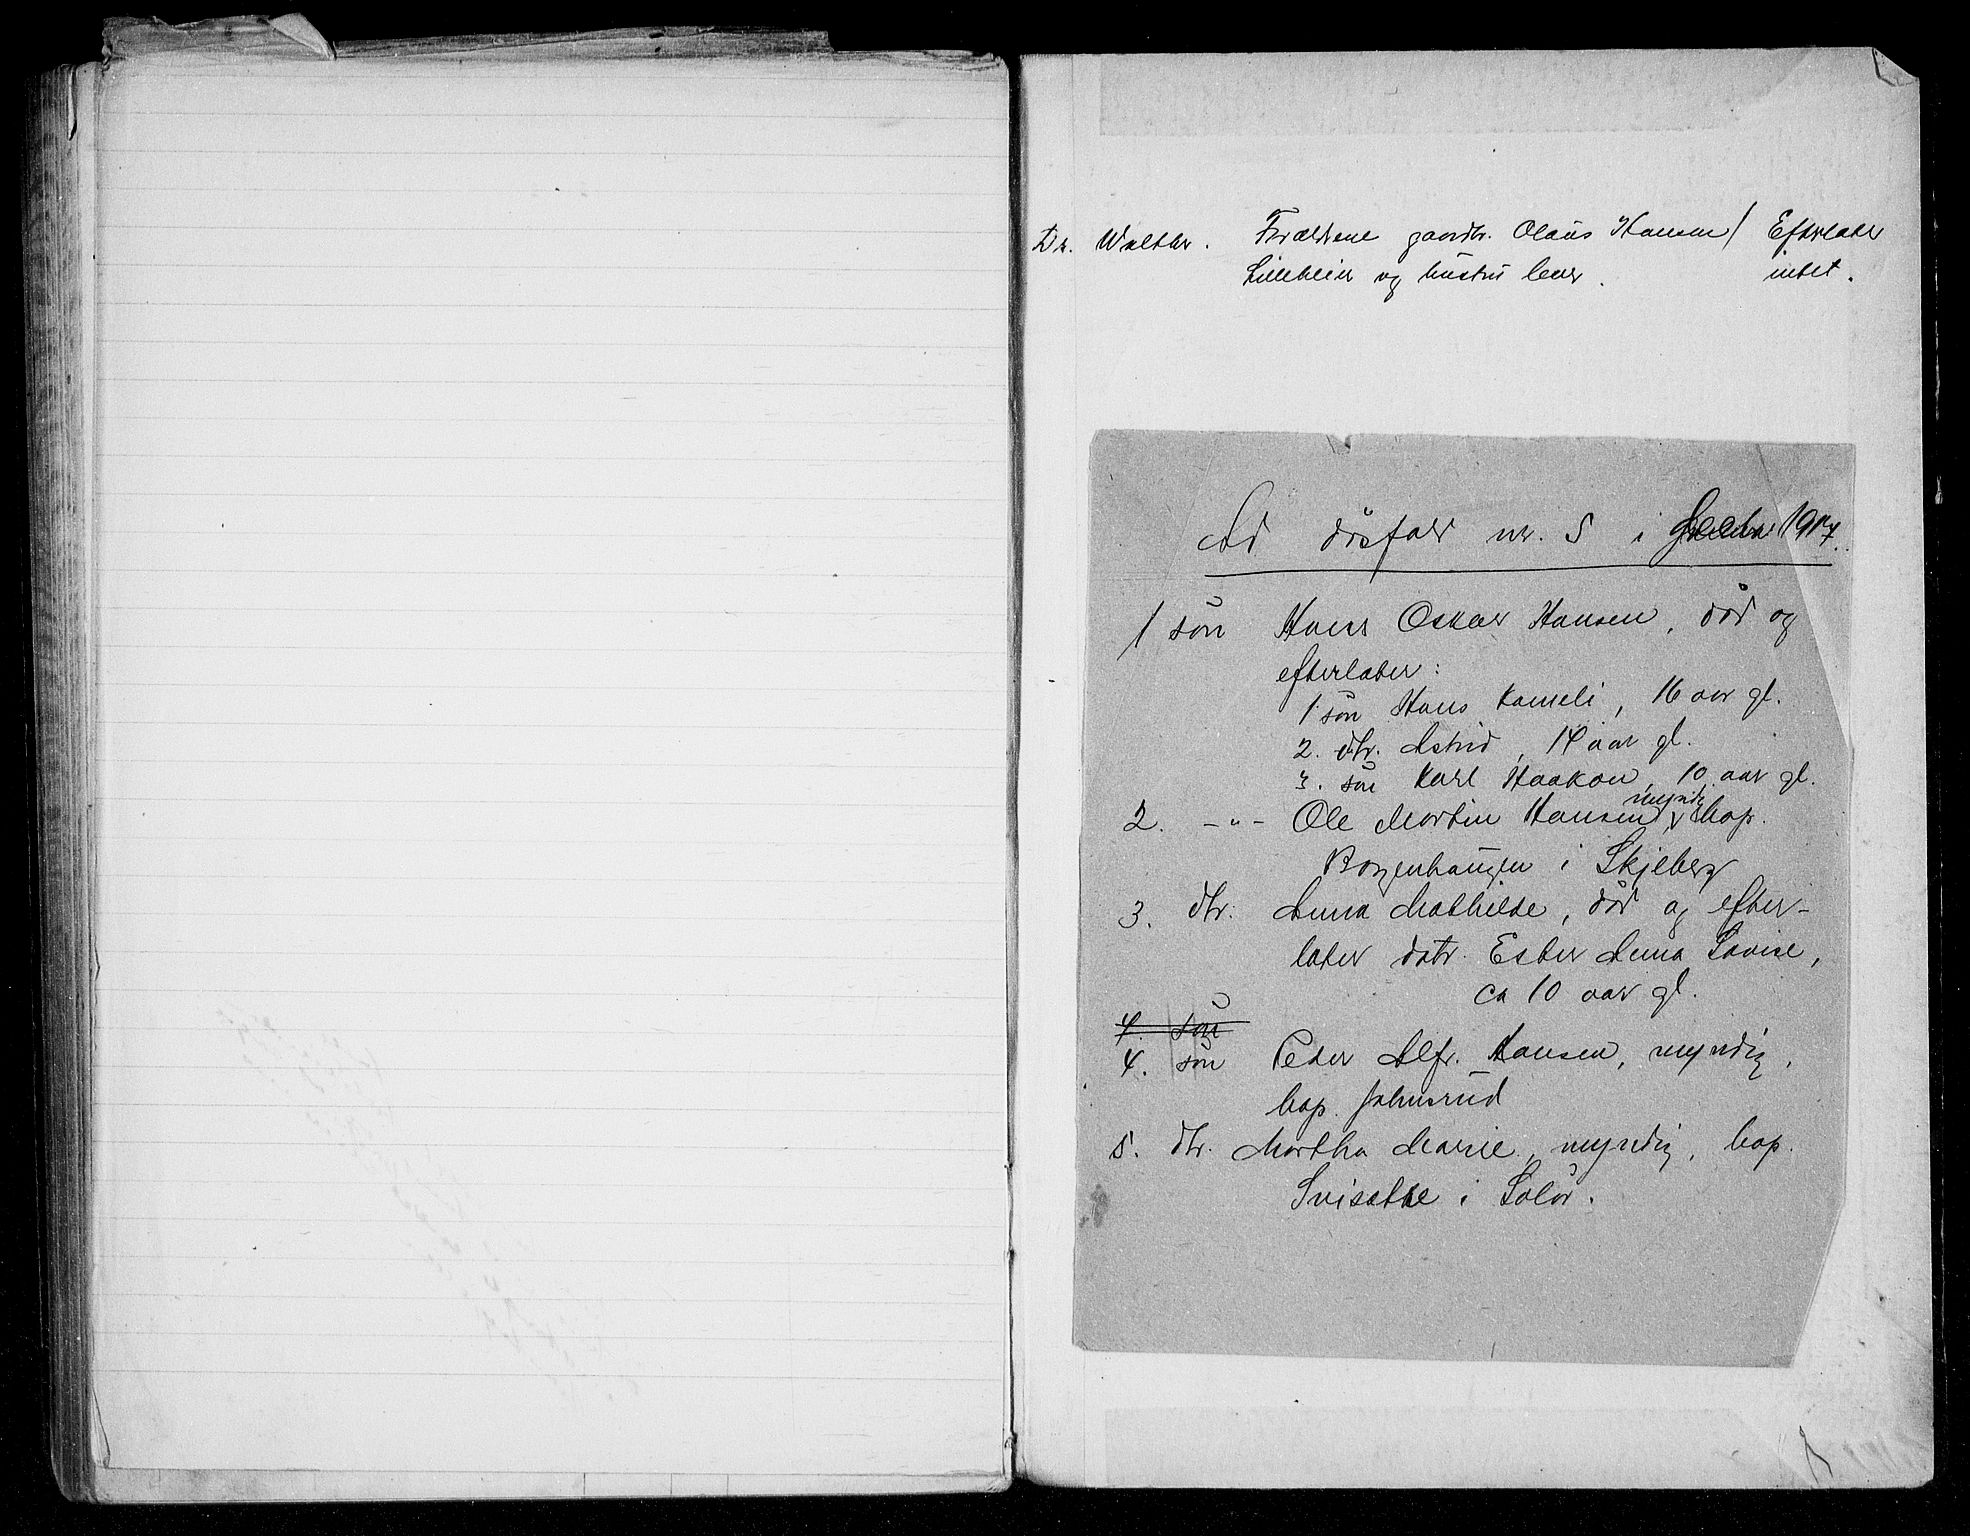 Dr. Walther. Forældrene gaardbr. Olaus Hansen / Efterlader
Lilleheier og hustru lever. intet.
Ad dösfald nr. 5 i 1917.
1 sön Hans Oskar Hansen, död og
efterlater:
1 sön Hans Kameli, 16 aar gl.
2. dtr. Astrid, 14 aar gl.
3. sön Karl Haakon, 10 aar gl.
2. -"- Ole Martin Hansen, myndig, bop.
Borgenhaugen i Skjeberg
3. dtr. Anna Mathilde, död og efter-
later datr. Ester Anna Lovise,
ca 10 aar gl.
4. sön
4. sön Peder Alfr. Hansen, myndig,
bop. Johnsrud
5. dtr. Martha Marie, myndig, bop.
i Solör.